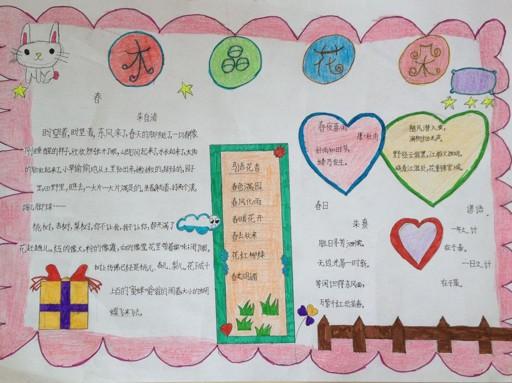 木 品 花 朵
春
朱自清
盼望着,盼望着,东风来了,春天的脚步近了。一切都像
刚睡醒的样子,欣欣然张开了眼。山朗润起来了,水长起来了,太阳
的脸红起来了。小草偷偷地从土里钻出来,嫩嫩的,绿绿的。园子
里,田野里,瞧去,一大片一大片满是的。
桃树、杏树、梨树,你不让我,我不让你,都开满了
花赶趟儿。红的像火,粉的像霞,白的像雪。花里带着甜味,闭了眼,
树上仿佛已经满是桃儿、杏儿、梨儿。花下成千
鸟语花香
春色满园
春风化雨
春暖花开
春去秋来
花红柳绿
春光明媚
春夜喜雨
唐·杜甫
好雨知时节,
当春乃发生。
随风潜入夜,
润物细无声。
野径云俱黑,江船火独明。
晓看红湿处,花重锦官城。
春日
朱熹
胜日寻芳泗水滨,
无边光景一时新。
等闲识得东风面,
万紫千红总是春。
谚语
一年之计
在于春。
一日之计
在于晨。